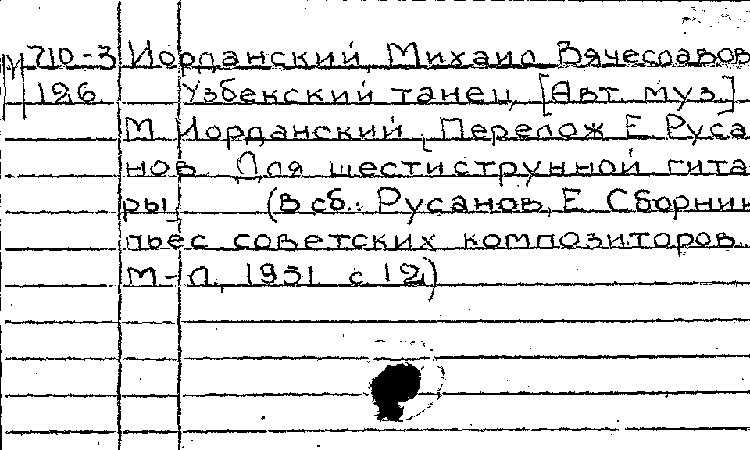 М710-3 Иорданский, Михаил Вячеславов
126 Узбекский танец. [Авт. муз.]
М. Иорданский, Перелож. Е. Руса-
нов. Для шестиструнной гита-
ры. (В сб.: Русанов, Е. Сборник
пьес советских композиторов.
М-Л., 1951. с. 12)